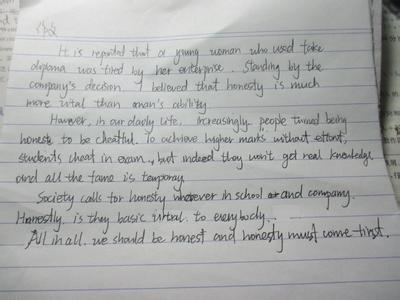 It is reported that a young woman who used fake
diploma was fired by her enterprise. Standing by the
company's decision, I believed that honesty is much
more vital than man's ability.
However, in our daily life, increasingly people turned being
honest to be cheatful. To achieve higher marks without effort,
students cheat in exam, but indeed they won't get real knowledge
and all the fame is temporay
Society calls for honesty wherever in school and company.
Honestly, is they basic to everybody.
All in all, we should be honest and honesty must come first.